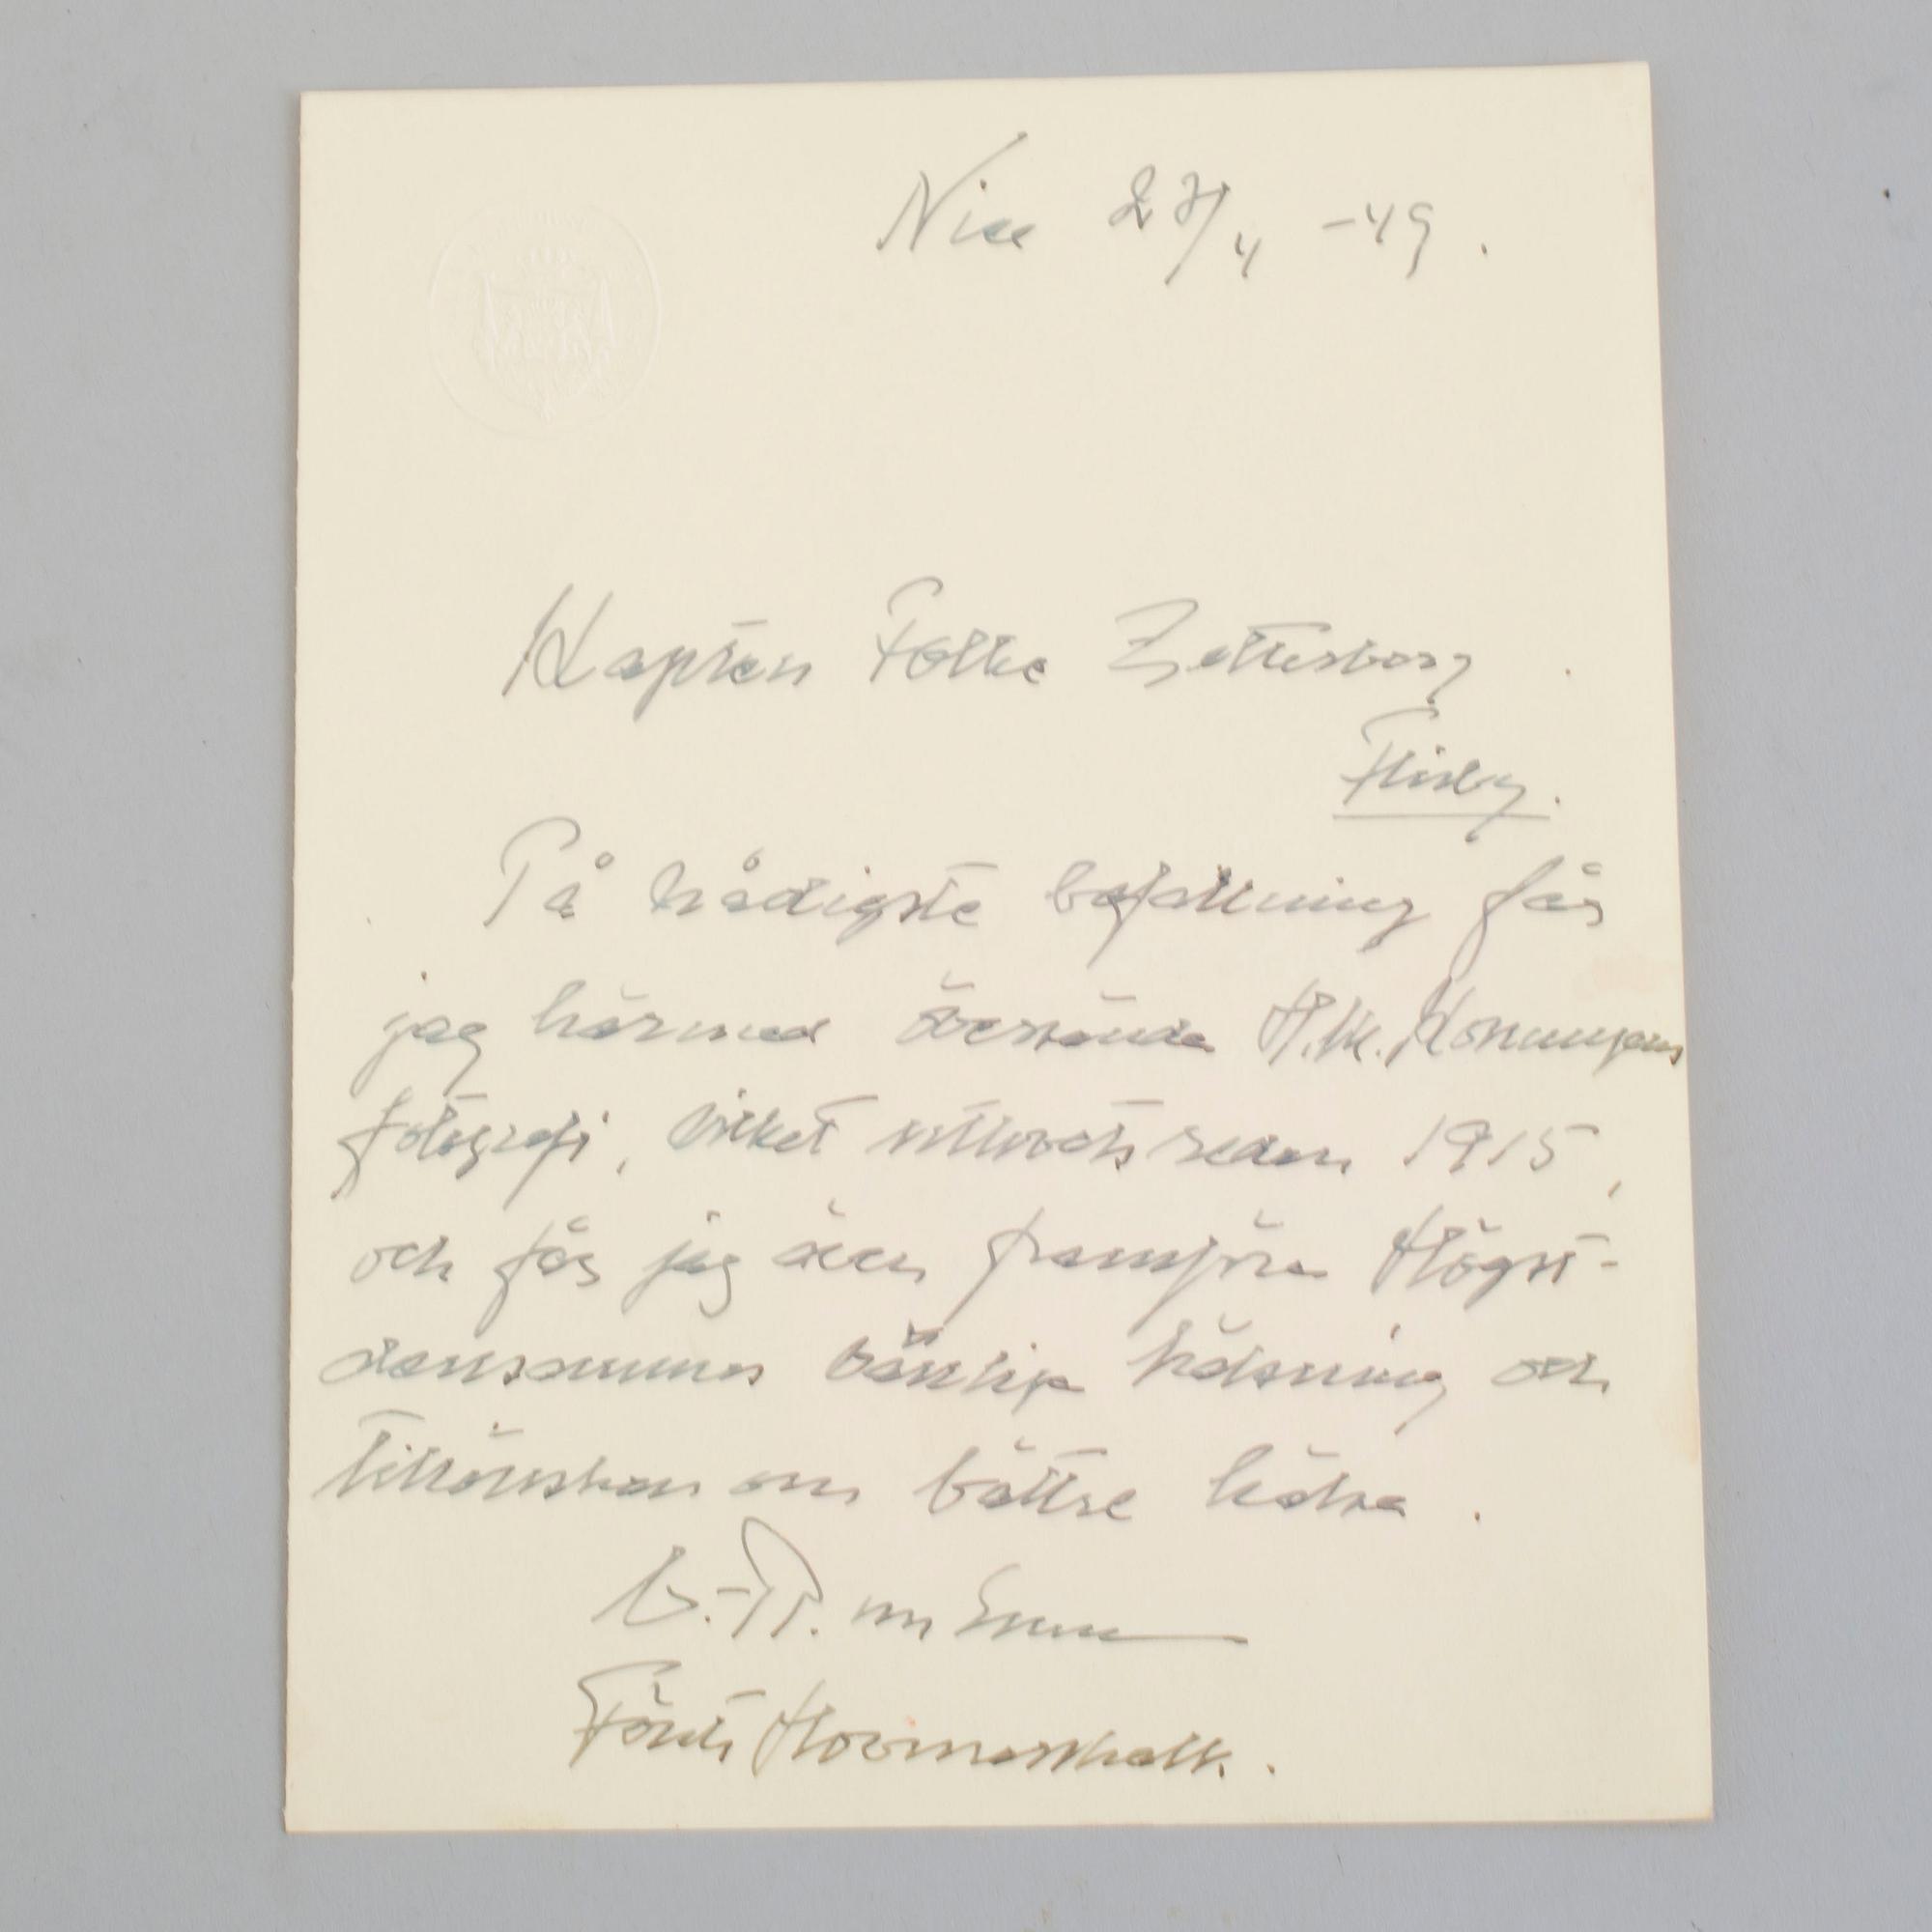 Nice 27/4 -49.
Kapten Folke Zetterborg
Flisby.
På nådigste befallning får
jag härmed översända H.M. Konungens
fotografi, vilket utlovats redan 1915,
och får jag även framföra Högst-
densammes vänliga hälsning och
tillönskan om bättre hälsa.
von
Förste Hovmarskalk.